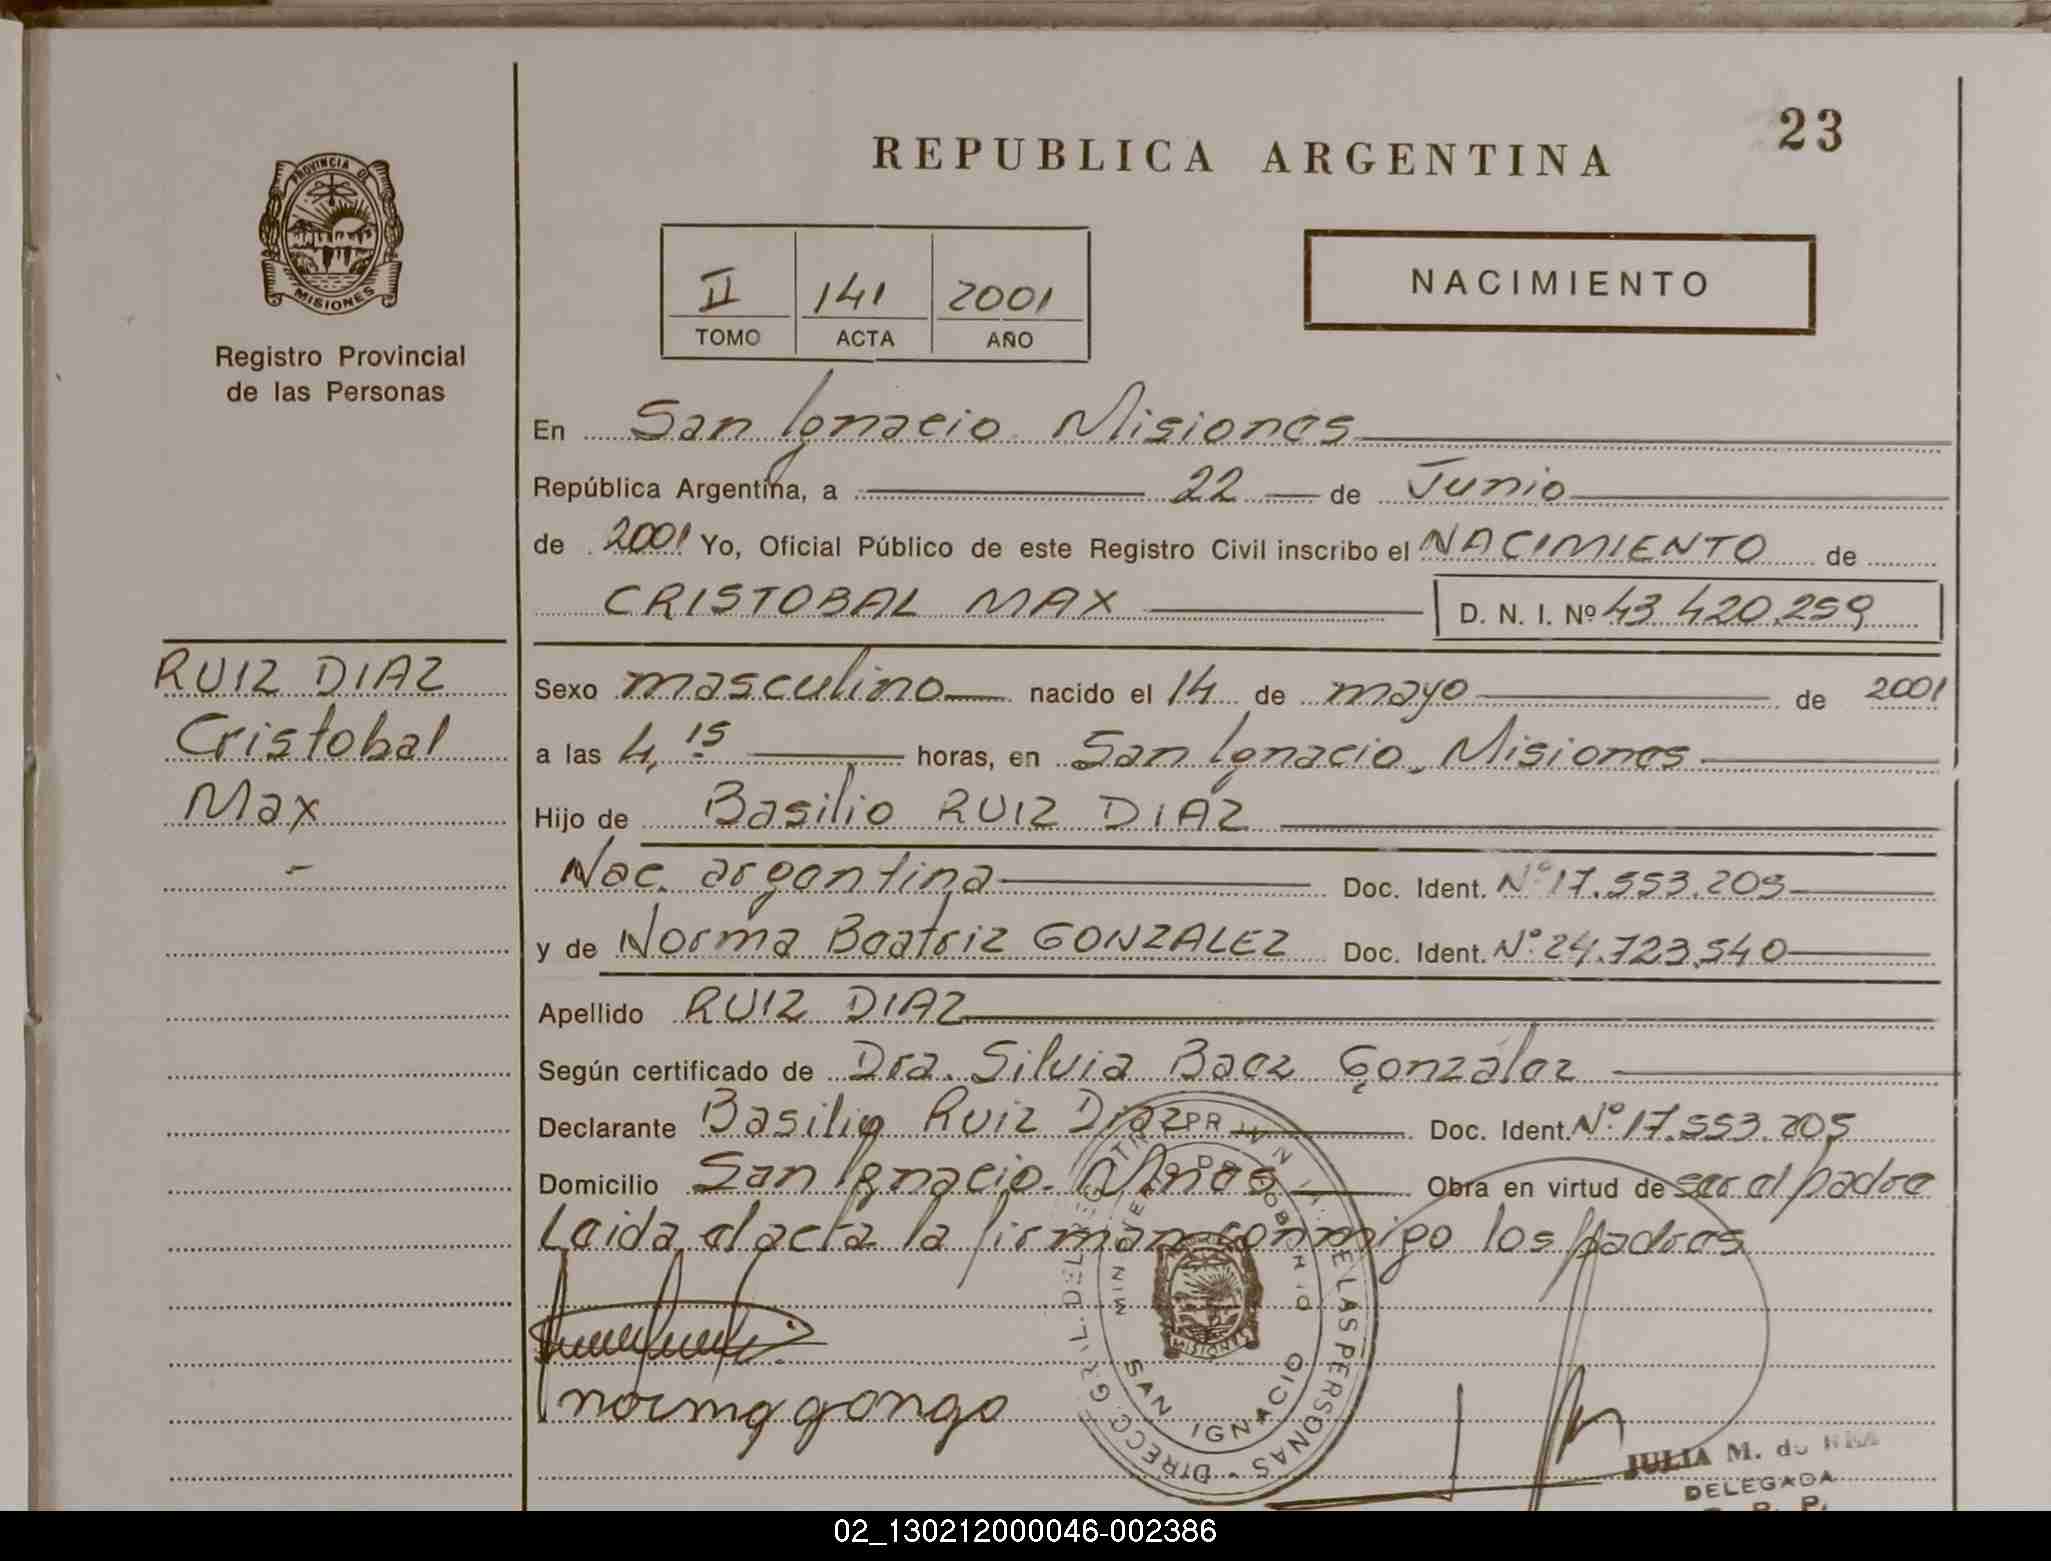 23
REPUBLICA ARGENTINA
PROVINCIA DE
MISIONES
Registro Provincial
de las Personas
II 141 2001
TOMO ACTA AÑO
NACIMIENTO
En San Ignacio Misiones
República Argentina, a 22 de Junio
de 2001 Yo, Oficial Público de este Registro Civil inscribo el NACIMIENTO de
CRISTOBAL MAX D. N. I. Nº 43 420.259
RUIZ DIAZ
Cristobal
Max
Sexo masculino nacido el 14 de mayo de 2001
a las 4,15 horas, en San Ignacio, Misiones
Hijo de Basilio RUIZ DIAZ
Nac. argentina Doc. Ident. Nº 17.553.205
y de Norma Beatriz GONZALEZ Doc. Ident. Nº 24.723.540
Apellido RUIZ DIAZ
Según certificado de Dra. Silvia Baez González
Declarante Basilio Ruiz Diaz Doc. Ident. Nº 17.553.205
Domicilio San Ignacio. Mnes Obra en virtud de ser el padre
Leida el acta la firman conmigo los padres
norma gonzo
DIRECC. GRAL. DEL DE LAS PERSONAS
SAN IGNACIO
MISIONES
JULIA M. de
DELEGADA
R. P.
02_130212000046-002386